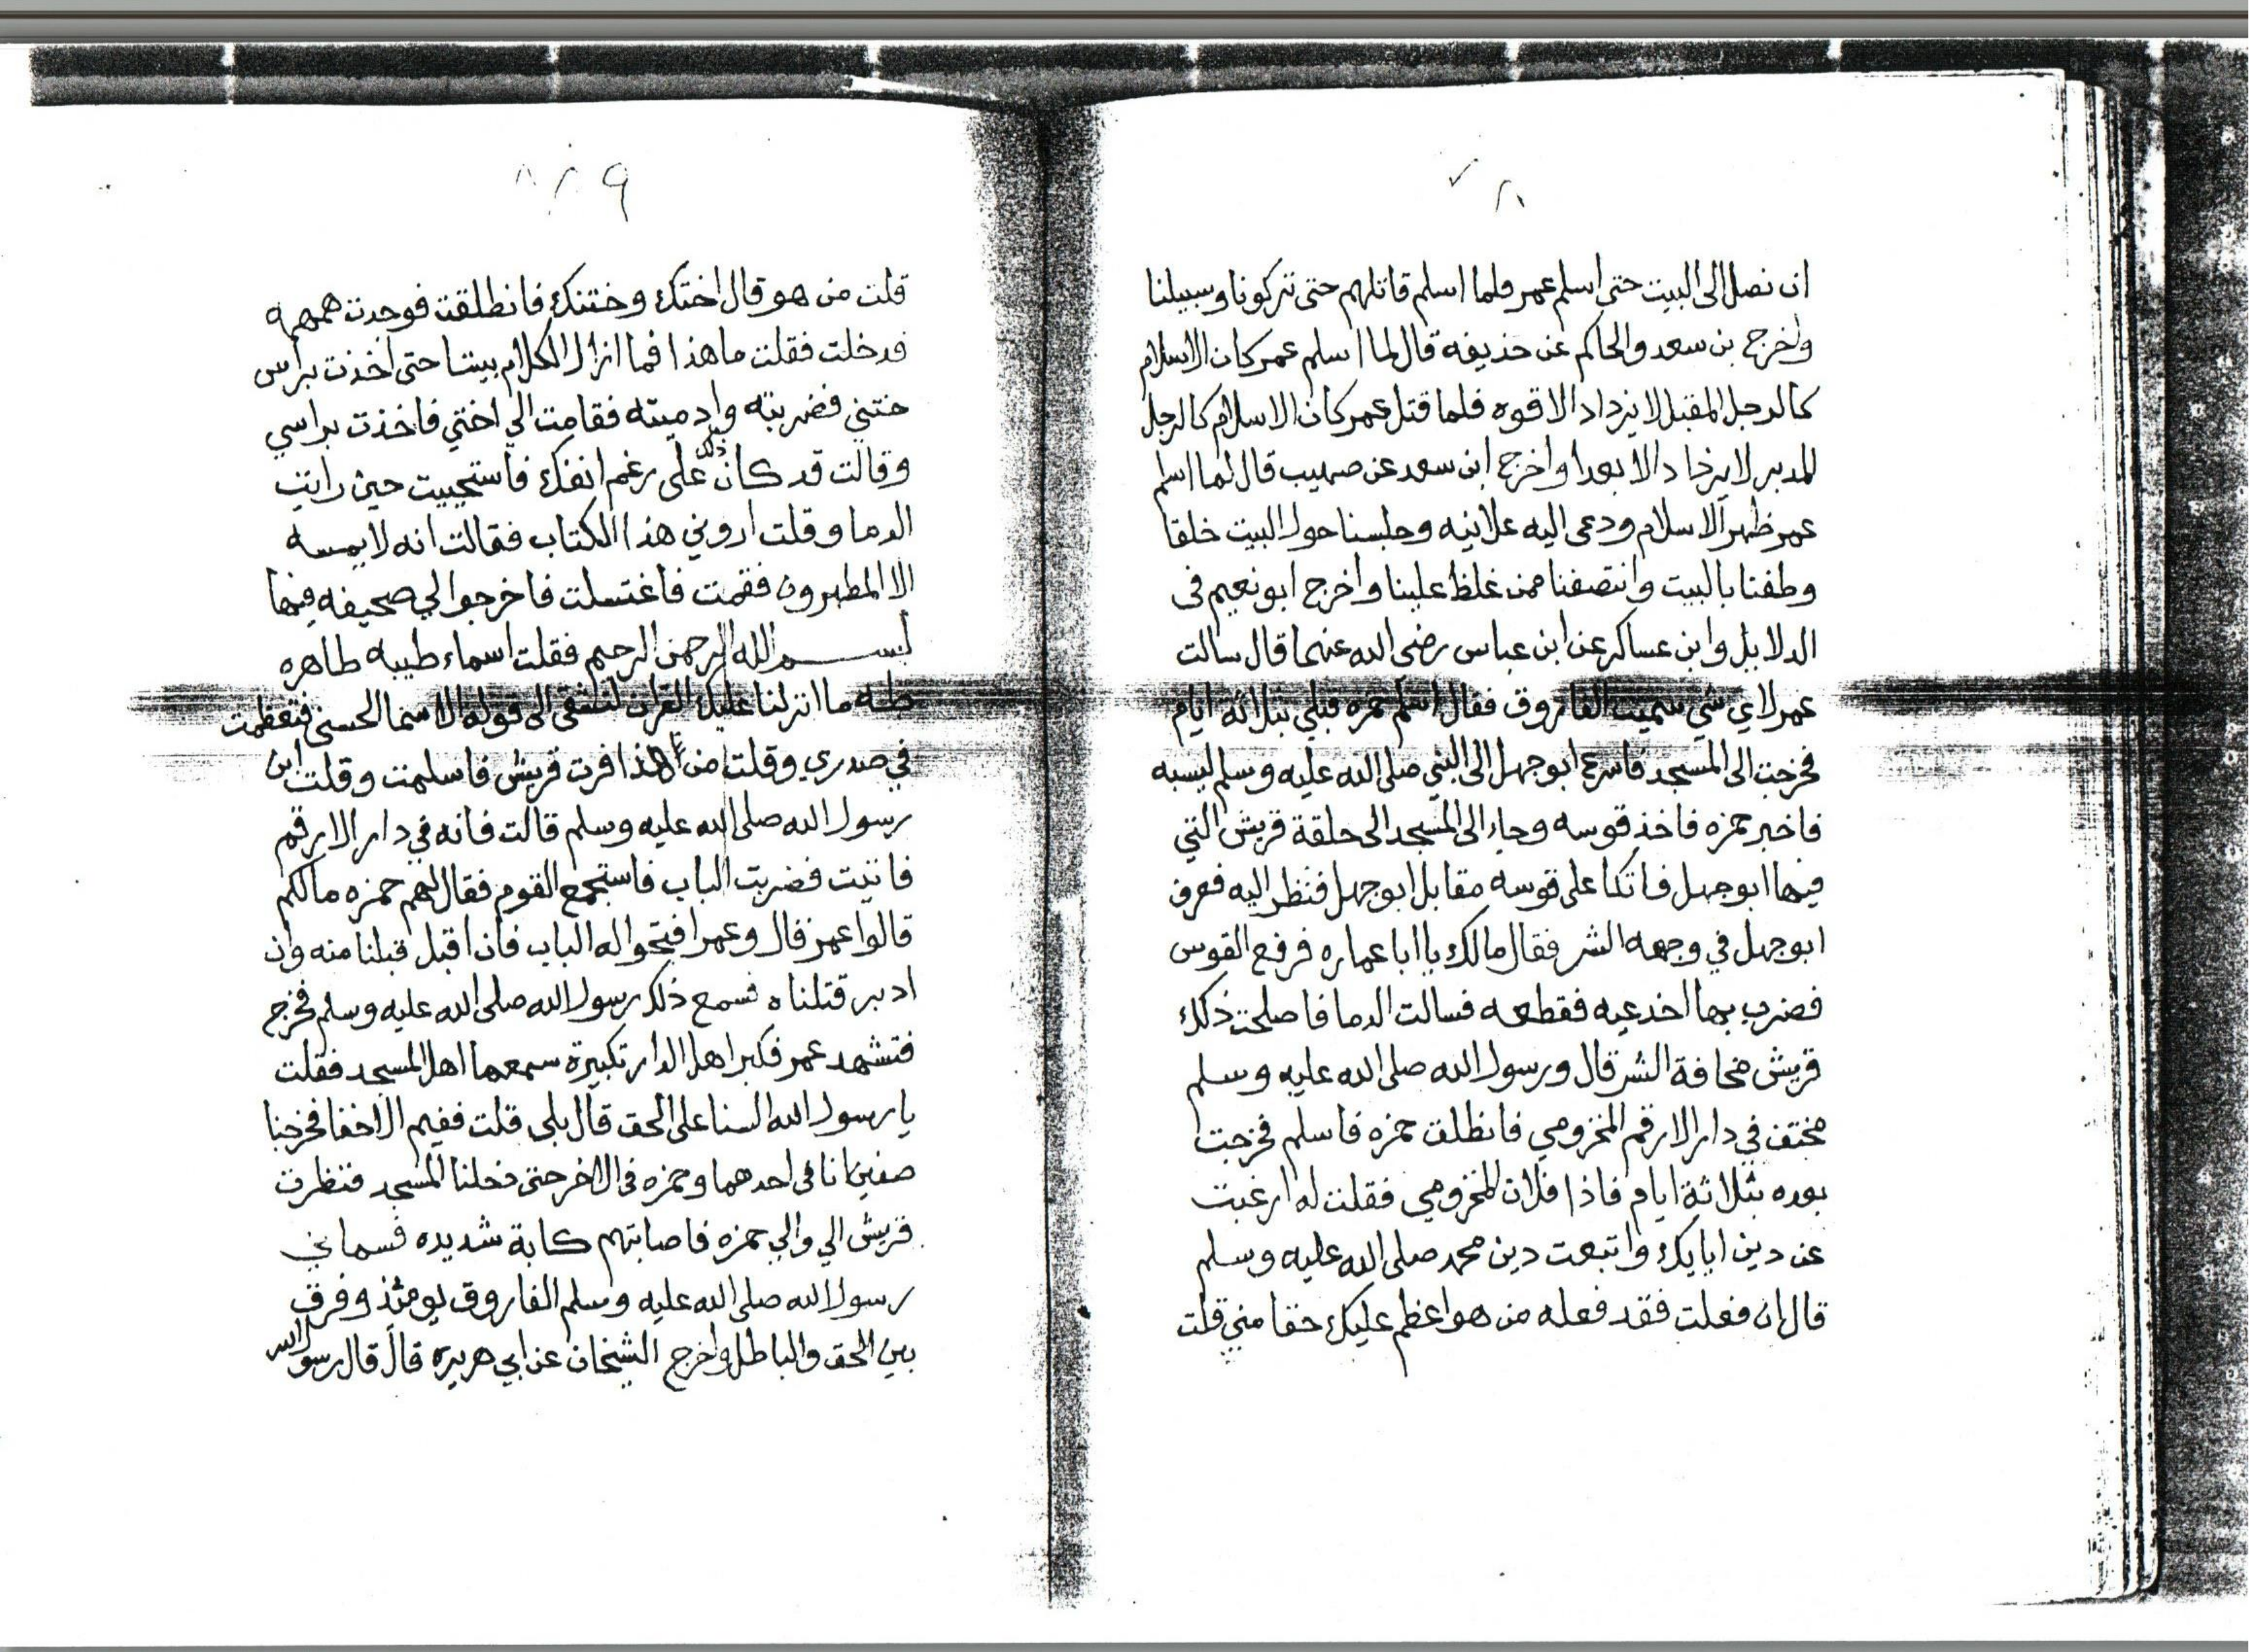 ان نصل الى البيت حتى اسلم عمر فلما اسلم قاتلهم حتى تركونا وسبيلنا
واخرج بن سعد والحاكم عن حذيفه قال لما اسلم عمر كان الاسلام
كالرجل المقبل لا يزداد الا قوه فلما قتل عمر كان الاسلام كالرجل
المدبر لا يزداد الا بعدا واخرج ابن سعد عن صهيب قال لما اسلم
عمر ظهر الاسلام ودعى اليه علانيه وجلسنا حول البيت حلقا
وطفنا بالبيت وانتصفنا ممن غلظ علينا واخرج ابو نعيم فى
الدلايل وابن عساكر عن ابن عباس رضى الله عنهما قال سالت
عمر لاي شي سميت الفاروق فقال اسلم حمزه قبلي بثلاثه ايام
فخرجت الى المسجد فاسرع ابو جهل الى النبي صلى الله عليه وسلم ليسبه
فاخبر حمزه فاخذ قوسه وجاء الى المسجد الى حلقة قريش التي
فيها ابو جهل فاتكا على قوسه مقابل ابو جهل فنظر اليه فعرف
ابو جهل في وجهه الشر فقال مالك يا ابا عماره فرفع القوس
فضرب بها اخدعيه فقطعه فسالت الدما فاصلحت ذلك
قريش مخافة الشر قال ورسول الله صلى الله عليه وسلم
مختف في دار الارقم المخزومي فانطلق حمزه فاسلم فخرجت
بعده بثلاثة ايام فاذا فلان المخزومي فقلت له ارغبت
عن دين ابايك واتبعت دين محمد صلى الله عليه وسلم
قال ان فعلت فقد فعله من هو اعظم عليك حقا مني قلت
قلت من هو قال اختك وختنك فانطلقت فوجدت همهمه
فدخلت فقلت ما هذا فما ازال الكلام بيننا حتى اخذت براس
ختني فضربته وادميته فقامت الي اختي فاخذت براسي
وقالت قد كان ذلك على رغم انفك فاستحييت حين رايت
الدما وقلت اروني هذا الكتاب فقالت انه لا يمسه
الا المطهرون فقمت فاغتسلت فاخرجوا لي صحيفه فيها
بسم الله الرحمن الرحيم فقلت اسماء طيبه طاهره
طه ما انزلنا عليك القران لتشقى الى قوله الاسما الحسنى فتعظمت
في صدري وقلت من هذا فرت قريش فاسلمت وقلت اين
رسول الله صلى الله عليه وسلم قالت فانه في دار الارقم
فاتيت فضربت الباب فاستجمع القوم فقال لهم حمزه مالكم
قالوا عمر قال وعمر افتحوا له الباب فان اقبل قبلنا منه وان
ادبر قتلناه فسمع ذلك رسول الله صلى الله عليه وسلم فخرج
فتشهد عمر فكبر اهل الدار تكبيرة سمعها اهل المسجد فقلت
يا رسول الله السنا على الحق قال بلى قلت ففيم الاخفا فخرجنا
صفين انا فى احدهما وحمزه فى الاخر حتى دخلنا المسجد فنظرت
قريش الي والي حمزه فاصابتهم كابة شديده فسماني
رسول الله صلى الله عليه وسلم الفاروق يومئذ وفرق
بين الحق والباطل واخرج الشيخان عن ابي هريره قال قال رسول الله